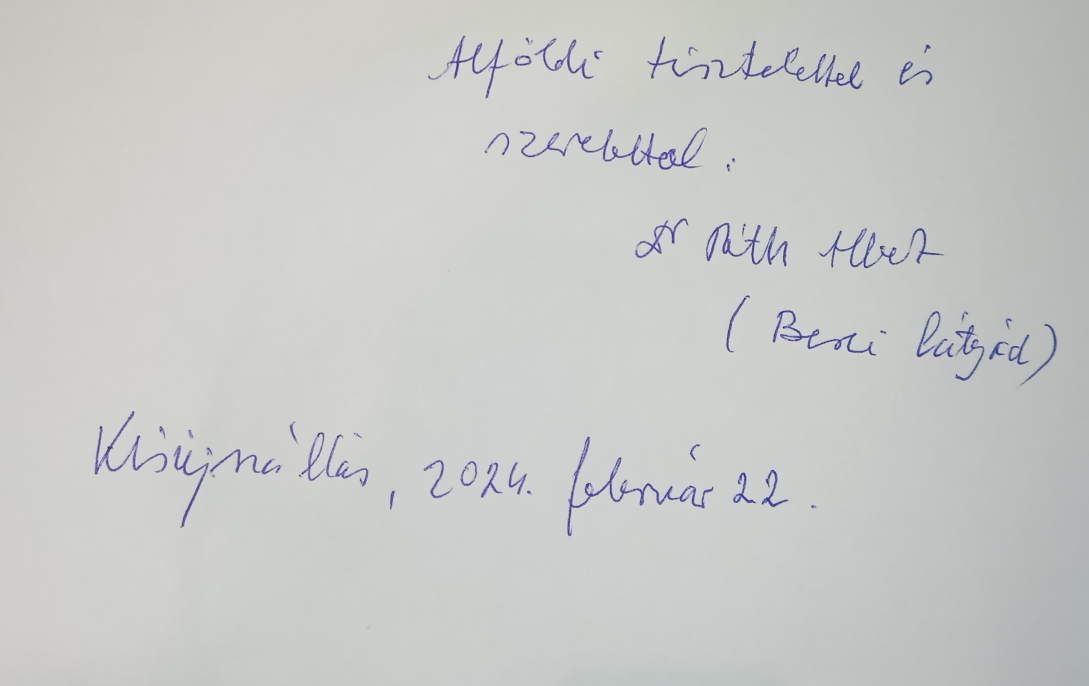 Alföldi tisztelettel és
szeretettel:
Dr Tóth Albert
(Berei bátyád)
Kisújszállás, 2024. február 22.